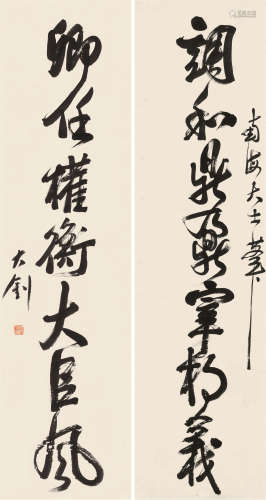 調和鼎鼐宰相義
南海大士
卿任權衡大臣風
大釗